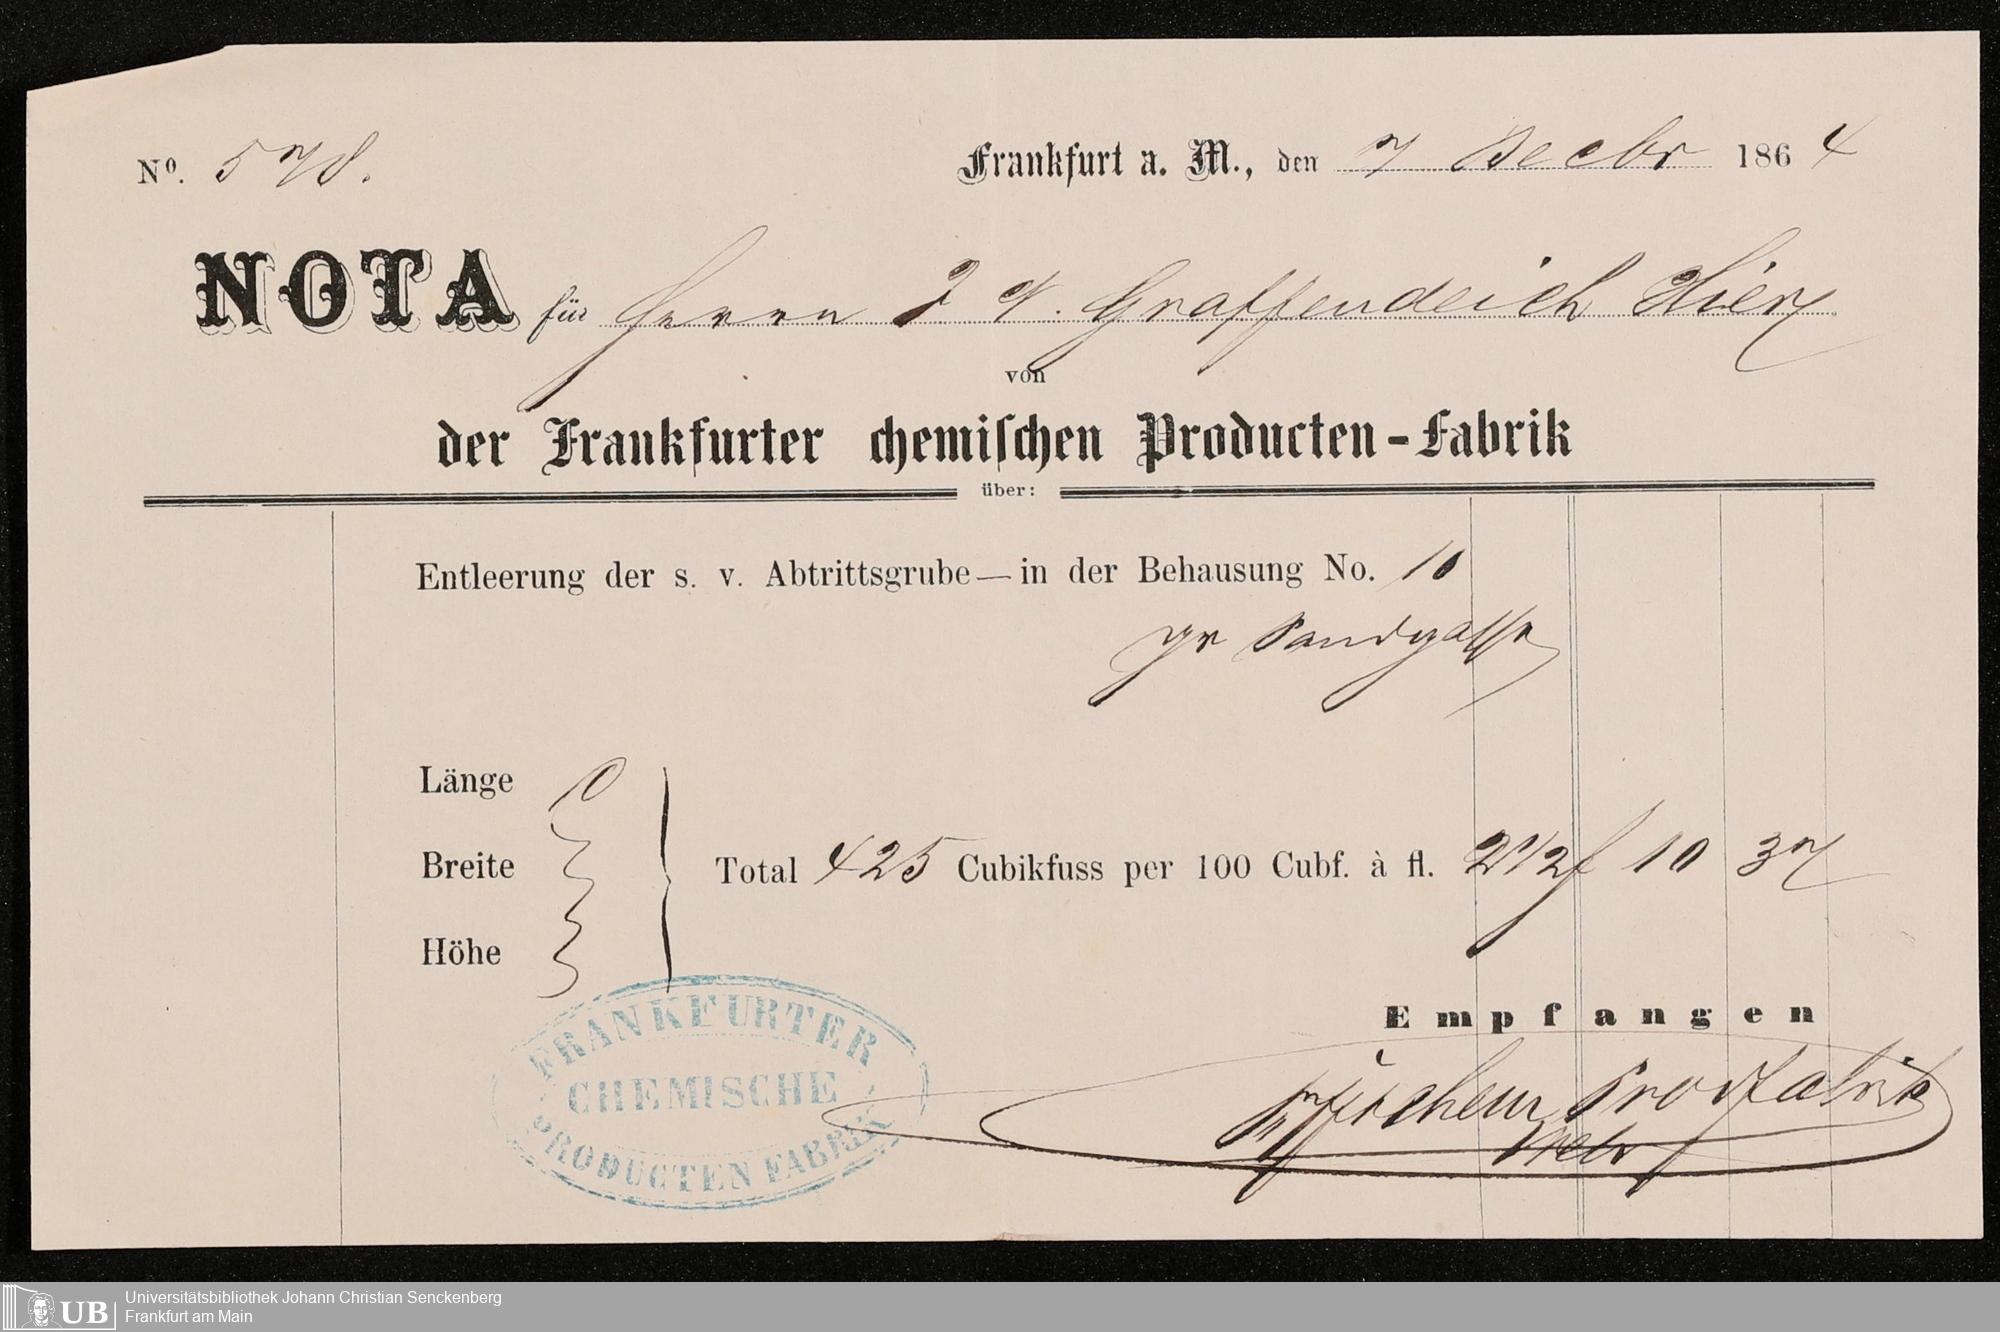 No. 578.
Frankfurt a. M., den 7 Decbr 1864
NOTA für Herrn J. A. Graffendeich Hier
von
der Frankfurter chemischen Producten-Fabrik
über:
Entleerung der s. v. Abtrittsgrube — in der Behausung No. 10
gr Sandgasse
Länge
Breite
Höhe
Total 425 Cubikfuss per 100 Cubf. à fl. 2 1/2 f 10 37
Empfangen
FRANKFURTER
CHEMISCHE
PRODUCTEN FABRIK
UB
Universitätsbibliothek Johann Christian Senckenberg
Frankfurt am Main